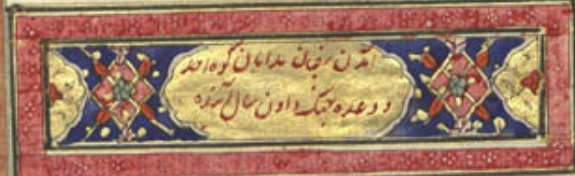 آمدن سفیان بدامان کوه احد
و وعده جنگ دادن سال آینده